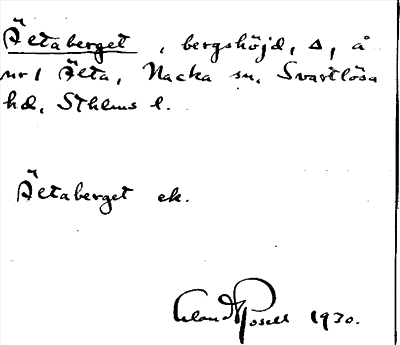 Ältaberget, bergshöjd, △, å
nr 1 Älta, Nacka sn, Svartlösa
hd, Sthlms l.
Ältaberget ek.
Erland Rosell 1930.